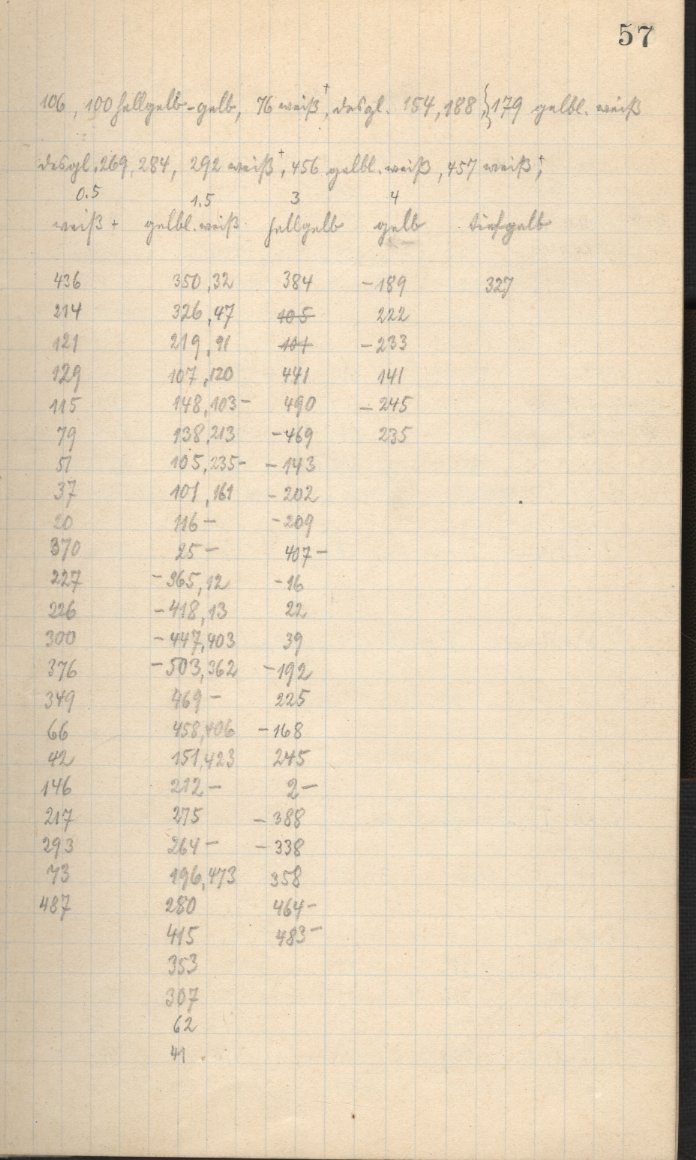 57
106, 100 hellgelb-gelb, 76 weiß+, desgl. 154, 188, } 179 gelbl. weiß
desgl. 269, 284, 292 weiß+, 456 gelbl. weiß, 457 weiß+,
0.5 1,5 3 4
weiß + gelbl. weiß hellgelb gelb tiefgelb
436 350, 32 384 -189 327
214 326, 47 105 222
121 219, 91 101 -233
129 107, 120 441 141
115 148, 103- 490 -245
79 138, 213 -469 235
51 105, 235- -143
37 101, 161 -202
20 116- -209
370 25- 407-
227 -365, 12 -16
226 -418, 13 22
300 -447, 403 39
376 -503, 362 -192
349 469- 225
66 458, 406 -168
42 151, 423 245
146 212- 2-
217 275 -388
293 264- -338
73 196, 473 358
487 280 464-
415 483-
353
307
62
41